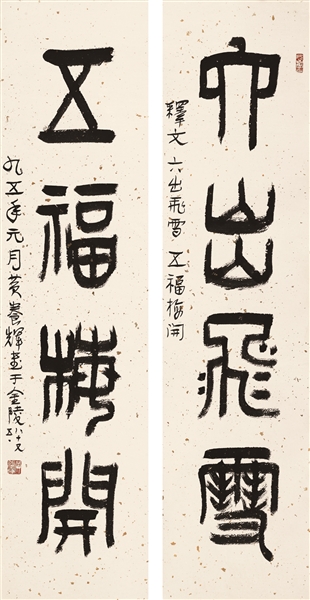 六出飛雪
釋文 六出飛雪 五福梅開
五福梅開
九五年元月黄養輝畫于金陵八十又五